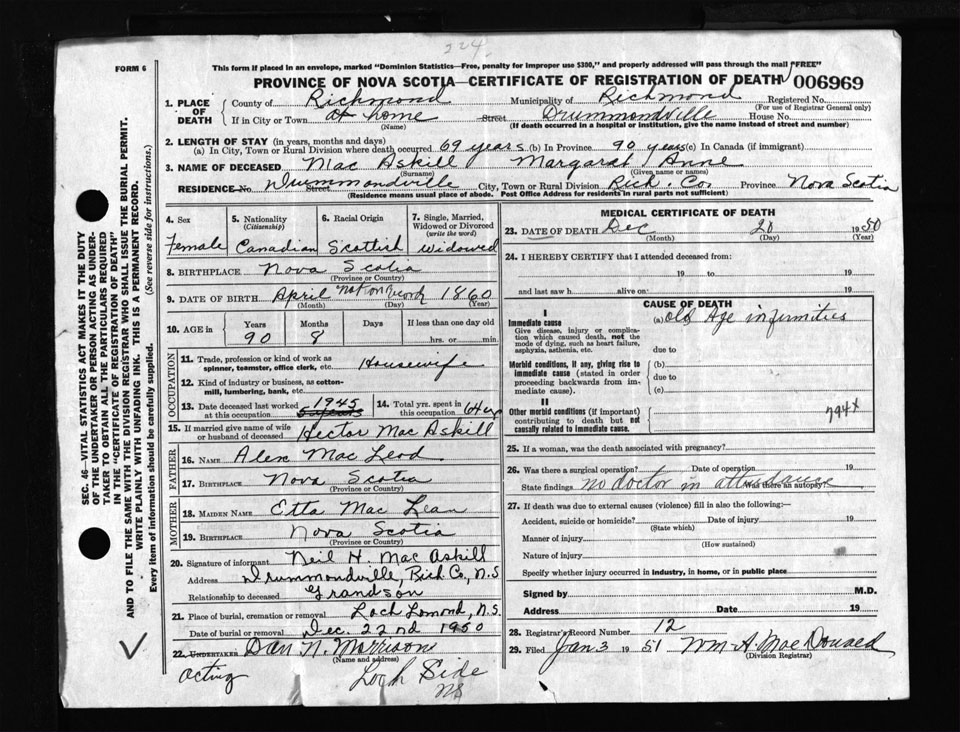 224
FORM 6
This form if placed in an envelope, marked "Dominion Statistics—Free, penalty for improper use $300," and properly addressed will pass through the mail "FREE"
PROVINCE OF NOVA SCOTIA—CERTIFICATE OF REGISTRATION OF DEATH 006969
1. PLACE OF DEATH
County of Richmond Municipality of Richmond Registered No.
(For use of Registrar General only)
If in City or Town at home Street Drummondville House No.
(Name) (If death occurred in a hospital or institution, give the name instead of street and number)
2. LENGTH OF STAY (in years, months and days)
(a) In City, Town or Rural Division where death occurred 69 years (b) In Province 90 years (c) In Canada (if immigrant)
3. NAME OF DECEASED Mac Askill Margaret Anne
(Surname) (Given name or names)
RESIDENCE No. Drummondville Street City, Town or Rural Division Rich. Co. Province Nova Scotia
(Residence means usual place of abode. Post Office Address for residents in rural parts not sufficient)
4. Sex Female
5. Nationality (Citizenship) Canadian
6. Racial Origin Scottish
7. Single, Married, Widowed or Divorced (write the word) widowed
8. BIRTHPLACE Nova Scotia
(Province or Country)
9. DATE OF BIRTH April not on record 1860
(Month) (Day) (Year)
10. AGE in Years 90 Months 8 Days If less than one day old hrs. or min.
OCCUPATION
11. Trade, profession or kind of work as spinner, teamster, office clerk, etc. Housewife
12. Kind of industry or business, as cotton-mill, lumbering, bank, etc.
13. Date deceased last worked at this occupation 1945 5 years
14. Total yrs. spent in this occupation
15. If married give name of wife or husband of deceased Hector Mac Askill
FATHER
16. NAME Alex Mac Leod
17. BIRTHPLACE Nova Scotia
(Province or Country)
MOTHER
18. MAIDEN NAME Etta Mac Lean
19. BIRTHPLACE Nova Scotia
(Province or Country)
20. Signature of informant Neil H. Mac Askill
Address Drummondville, Rich. Co., N.S
Relationship to deceased Grandson
21. Place of burial, cremation or removal Loch Lomond, N.S.
Date of burial or removal Dec. 22nd 1950
22. UNDERTAKER Dan N. Morrison
(Name and address)
acting Loch Side
NS
MEDICAL CERTIFICATE OF DEATH
23. DATE OF DEATH Dec 20 1950
(Month) (Day) (Year)
24. I HEREBY CERTIFY that I attended deceased from
19 to 19
and last saw h alive on 19
CAUSE OF DEATH
I
Immediate cause (a) old Age infirmities
Give disease, injury or complication which caused death, not the mode of dying, such as heart failure, asphyxia, asthenia, etc.
due to
Morbid conditions, if any, giving rise to immediate cause (stated in order proceeding backwards from immediate cause).
(b)
due to
(c)
II
Other morbid conditions (if important) contributing to death but not causally related to immediate cause.
794x
25. If a woman, was the death associated with pregnancy?
26. Was there a surgical operation? Date of operation 19
State findings no doctor in attendance Was there an autopsy?
27. If death was due to external causes (violence) fill in also the following:—
Accident, suicide or homicide? Date of injury 19
(State which)
Manner of injury
(How sustained)
Nature of injury
Specify whether injury occurred in industry, in home, or in public place
Signed by M.D.
Address Date 19
28. Registrar's Record Number 12
29. Filed Jan 3 1951 Wm A Mac Donald
(Division Registrar)
SEC. 46—VITAL STATISTICS ACT MAKES IT THE DUTY
OF THE UNDERTAKER OR PERSON ACTING AS UNDER-
TAKER TO OBTAIN ALL THE PARTICULARS REQUIRED
IN THE "CERTIFICATE OF REGISTRATION OF DEATH"
AND TO FILE THE SAME WITH THE DIVISION REGISTRAR WHO SHALL ISSUE THE BURIAL PERMIT.
WRITE PLAINLY WITH UNFADING INK. THIS IS A PERMANENT RECORD.
Every item of information should be carefully supplied. (See reverse side for instructions.)